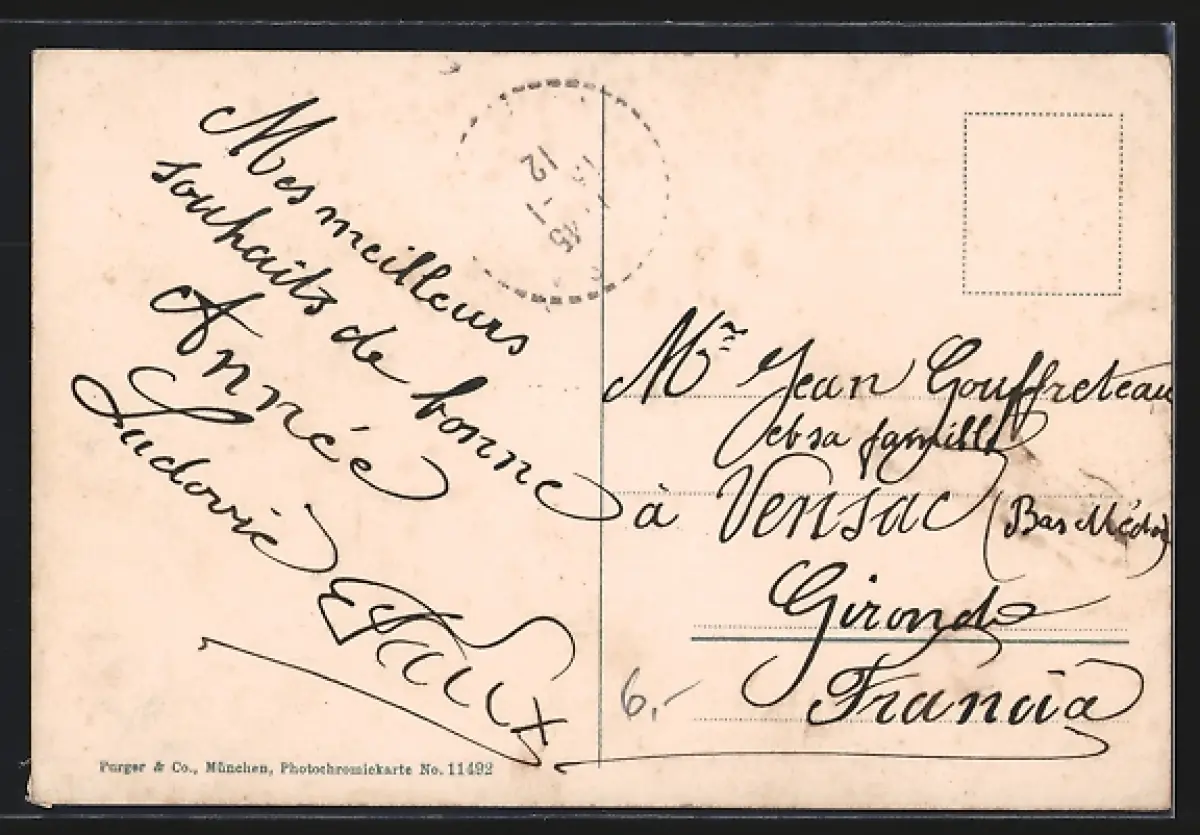 Mes meilleurs
souhaits de bonne
Année
Ludovic
12
Mr Jean Gouffreteau
et sa famille
à Vensac (Bas Médoc)
Gironde
Francia
6,-
Purger & Co., München, Photochromiekarte No. 11492